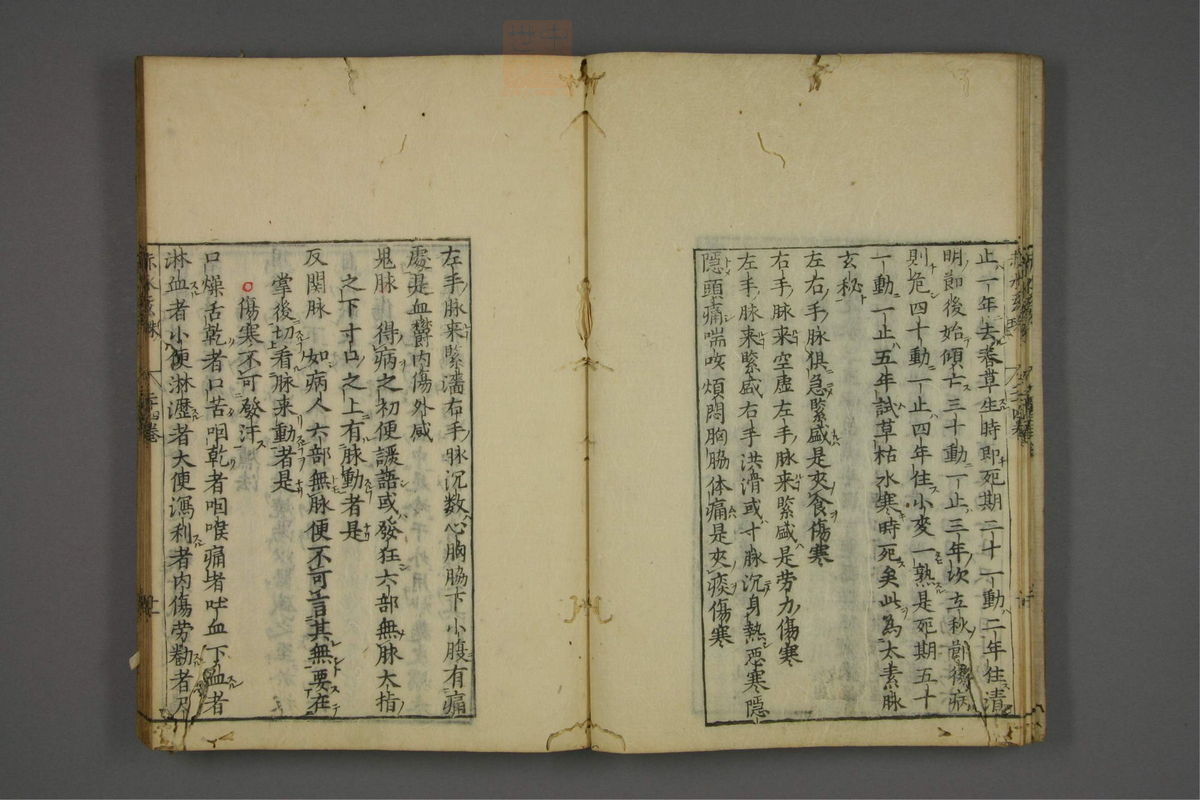 止一年去春草生時即死期二十一動二年住清
明節後始傾亡三十動一止三年坎立秋節後病
則危四十動一止四年住小麥一熟是死期五十
一動一止五年試草枯水寒時死矣此為太素脉
玄秘
左右手脉俱急緊盛是夾食傷寒
右手脉来空虛左手脉来緊盛是劳力傷寒
左手脉来緊盛右手洪滑或寸脉沉身熱惡寒隱
隱頭痛喘咳煩悶胸脇体痛是夾痰傷寒
左手脉来緊濇右手脉沉数心胸脇下小腹有痛
處是血欝内傷外感
鬼脉 得病之初便譫語或發狂六部無脉大指
之下寸口之上有脉動者是
反関脉 如病人六部無脉便不可言其無要在
掌後切看脉来動者是
傷寒不可發汗
口燥舌乾者口苦咽乾者咽喉痛者吐血下血者
淋血者小便淋瀝者大便瀉利者内傷劳勸者